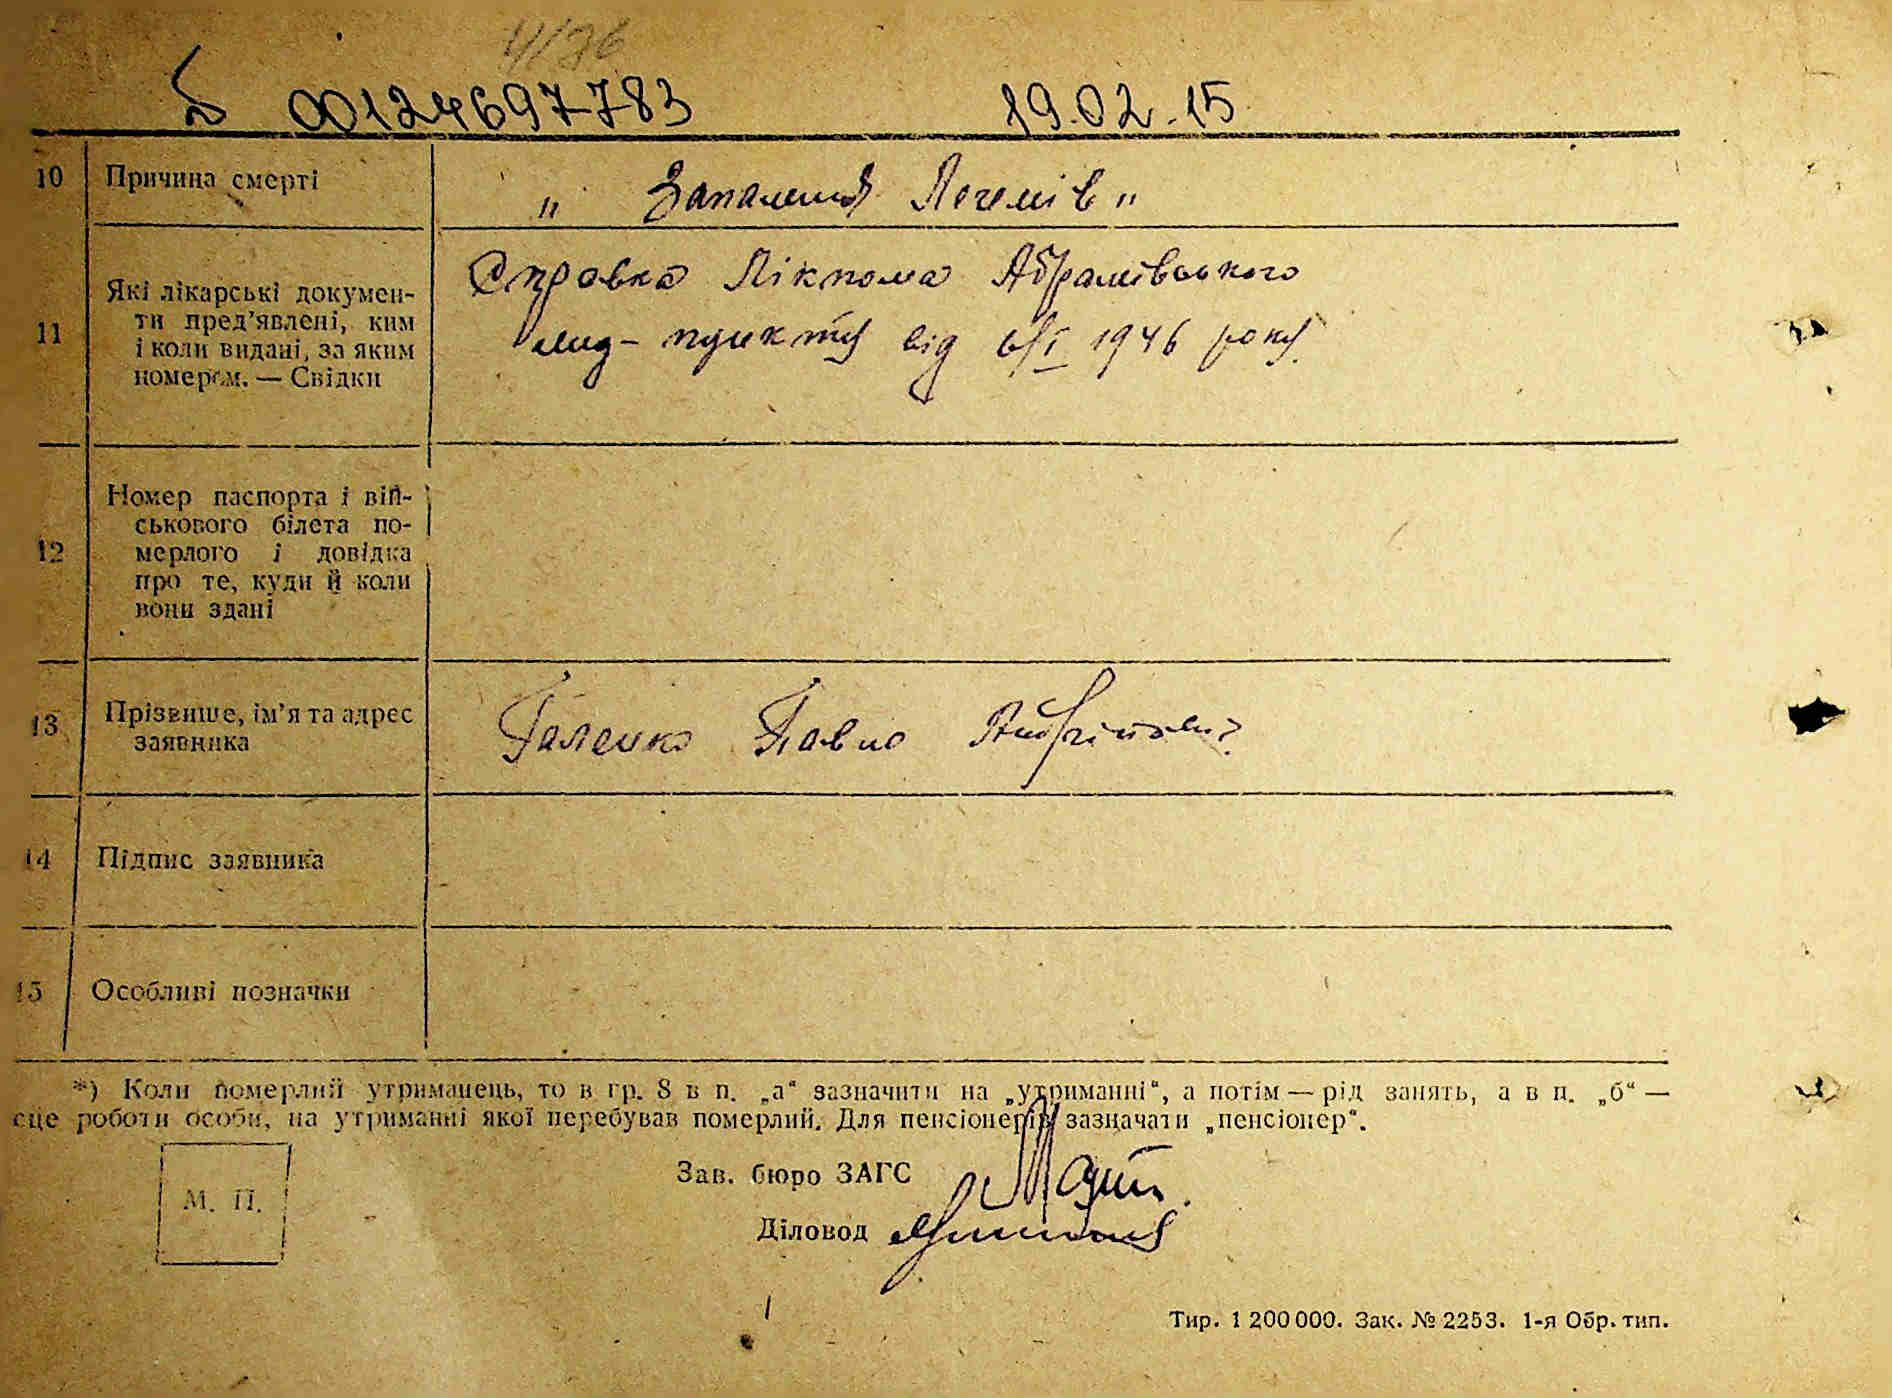 4/26
00124697783 19.02.15
10 Причина смерті „ Запалення Легенів "
11 Які лікарські докумен-
ти пред'явлені, ким
і коли видані, за яким
номером. — Свідки
Справка Лікпома Абрамівського
мед-пункту від 6/I 1946 року.
12 Номер паспорта і вій-
ськового білета по-
мерлого і довідка
про те, куди й коли
вони здані
13 Прізвище, ім'я та адрес
заявника
Галенко Павло
14 Підпис заявника
15 Особливі позначки
*) Коли померлий утриманець, то в гр. 8 в п. „а“ зазначити на „утриманні“, а потім — рід занять, а в п. „б“ —
сце роботи особи, на утриманні якої перебував померлий. Для пенсіонерів зазначати „пенсіонер“.
Зав. бюро ЗАГС
М. П.
Діловод
Тир. 1 200 000. Зак. № 2253. 1-я Обр. тип.